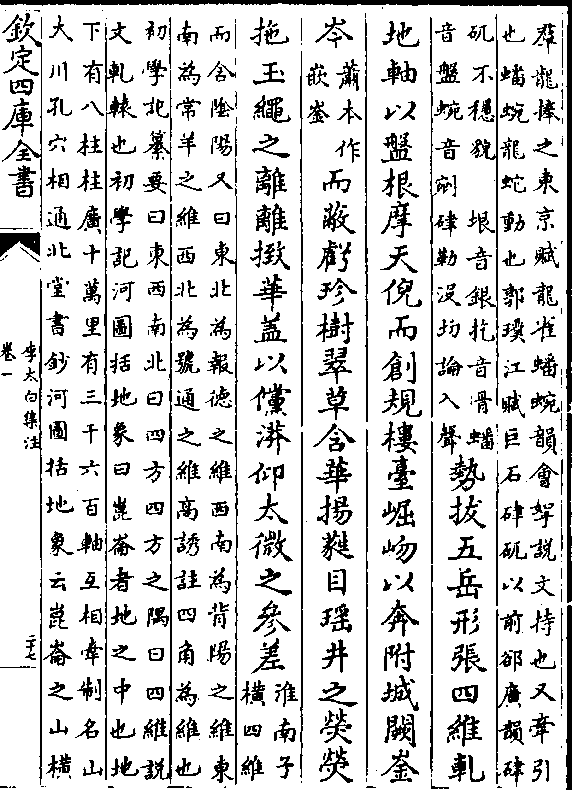 羣龍捧之東京賦龍雀蟠蜿韻會挐説文持也又牽引
也蟠蜿龍蛇動也郭璞江賦巨石硉矹以前郤廣韻硉
矹不穩貌　垠音銀扢音骨蟠
音盤蜿音剜硉勒没切論入聲
勢拔五岳形張四維軋
地軸以盤根摩天倪而創規樓臺崛岉以奔附城闕崟
岑
蕭本作
嵌崟
而蔽虧珍樹翠草含華揚蕤目瑶井之熒熒
拖玉繩之離離掞華蓋以儻漭仰太微之參差
淮南子
横四維
而含陰陽又曰東北為報徳之維西南為背陽之維東
南為常羊之維西北為號通之維高誘註四角為維也
初學記纂要曰東西南北曰四方四方之隅曰四維説
文軋輾也初學記河圖括地象曰崑崙者地之中也地
下有八柱柱廣十萬里有三千六百軸互相牽制名山
大川孔穴相通北堂書鈔河圖括地象云崑崙之山横
欽定四庫全書
李太白集注
卷一
二十七